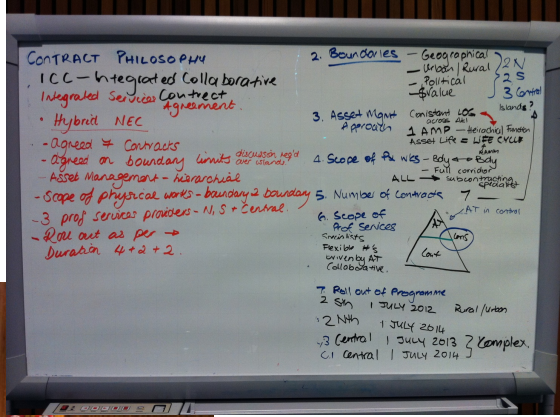 CONTRACT PHILOSOPHY
ICC - Integrated Collaborative
Contract
Integrated Services
Agreement.
• Hybrid NEC
- Agreed 7 Contracts
- agreed on boundary limits discussion req'd
over islands
- Asset Management - hierarchial
- Scope of physical works - boundary 2 boundary
- 3 prof services providers - N, S + Central.
- Roll out as per →
Duration 4 + 2 + 2.
2. Boundaries
- Geographical
- Urban / Rural
- Political
- $ value
2 N
2 S
3 Central
Islands?
3. Asset Mgmt
Approach
Consistent LOS
across Akl
1 AMP - Hierachial Function
Asset Life = LIFE CYCLE
4. Scope of Ph Wks - Body ↔ Body
- Full corridor
ALL → subcontracting
specialist
5. Number of Contracts 7
6. Scope of
Prof Services
Specialists
Flexible #'s
Driven by AT
Colloborative.
AT in control
AT
Cons
Cont
7 Roll out of Programme
2 Sth 1 JULY 2012 Rural / Urban
2 Nth 1 JULY 2014
3 Central 1 JULY 2013
C1 Central 1 JULY 2014
Komplex.